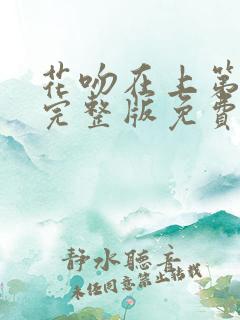 花吻在上第
完整版免費
靜水聽音
未经同意禁止转载